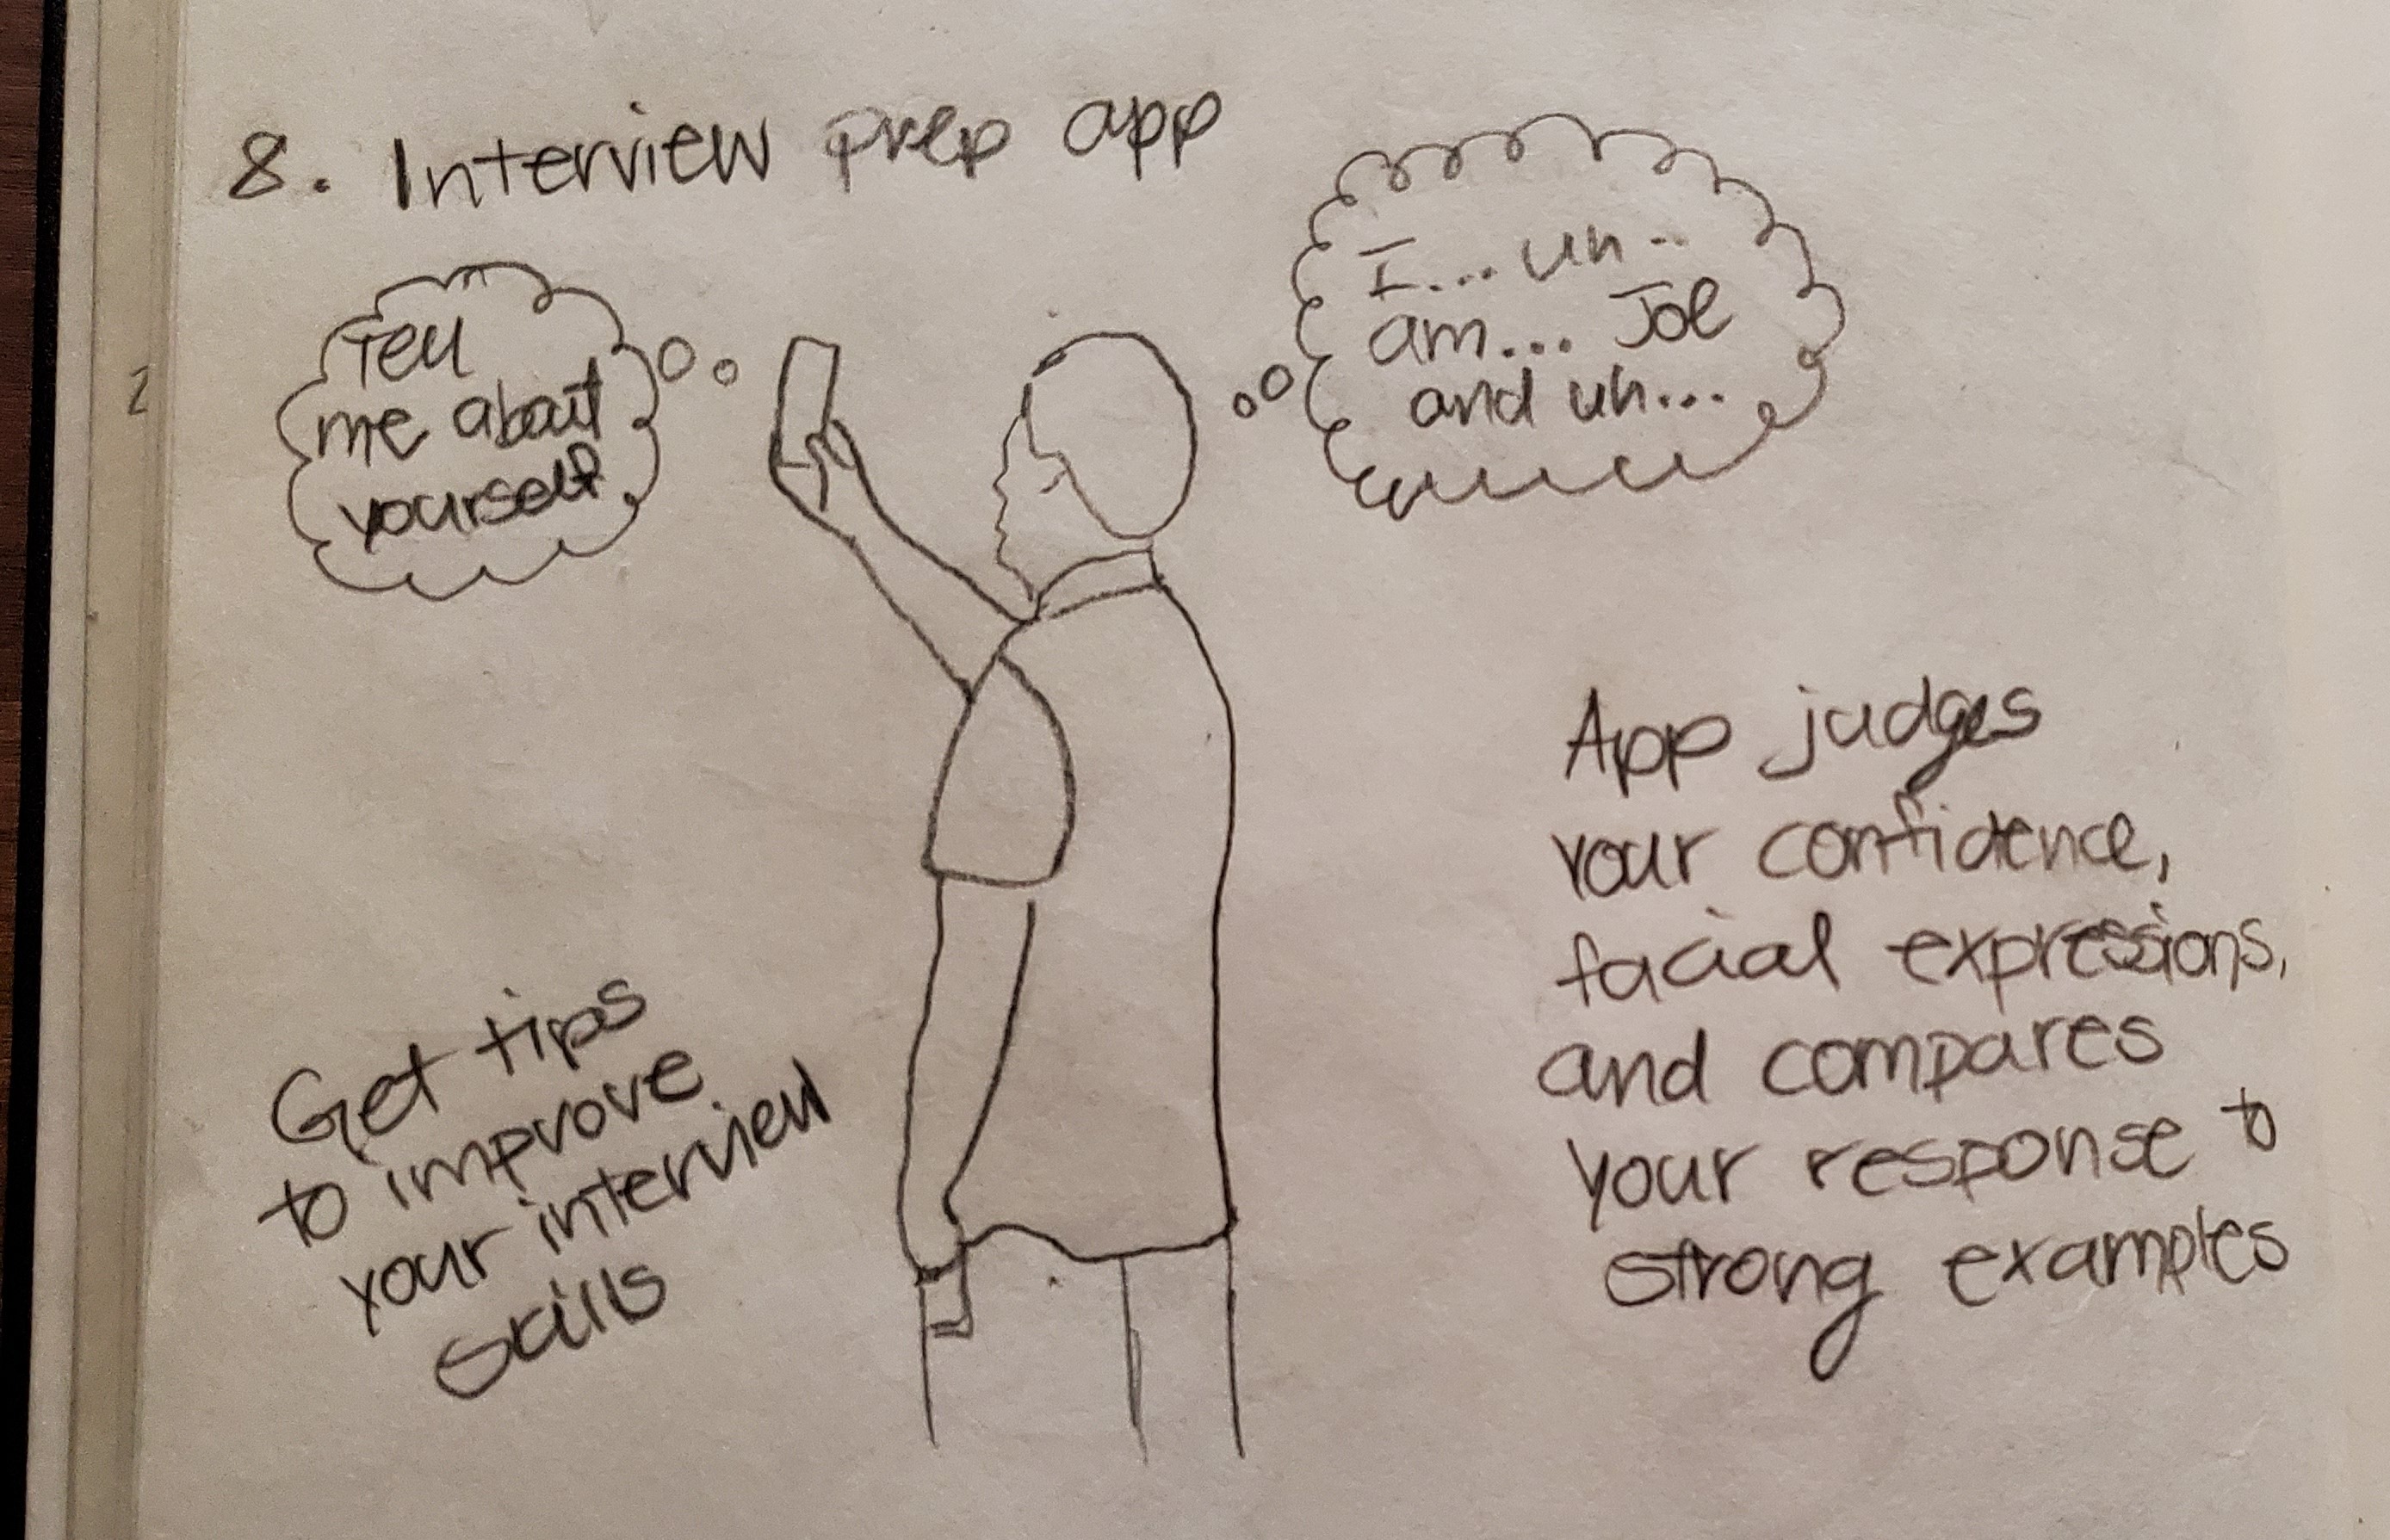 8. Interview prep app
Tell
me about
yourself
I... uh..
am... Joe
and uh...
App judges
your confidence,
facial expressions,
and compares
your response to
strong examples
Get tips
to improve
your interview
skills